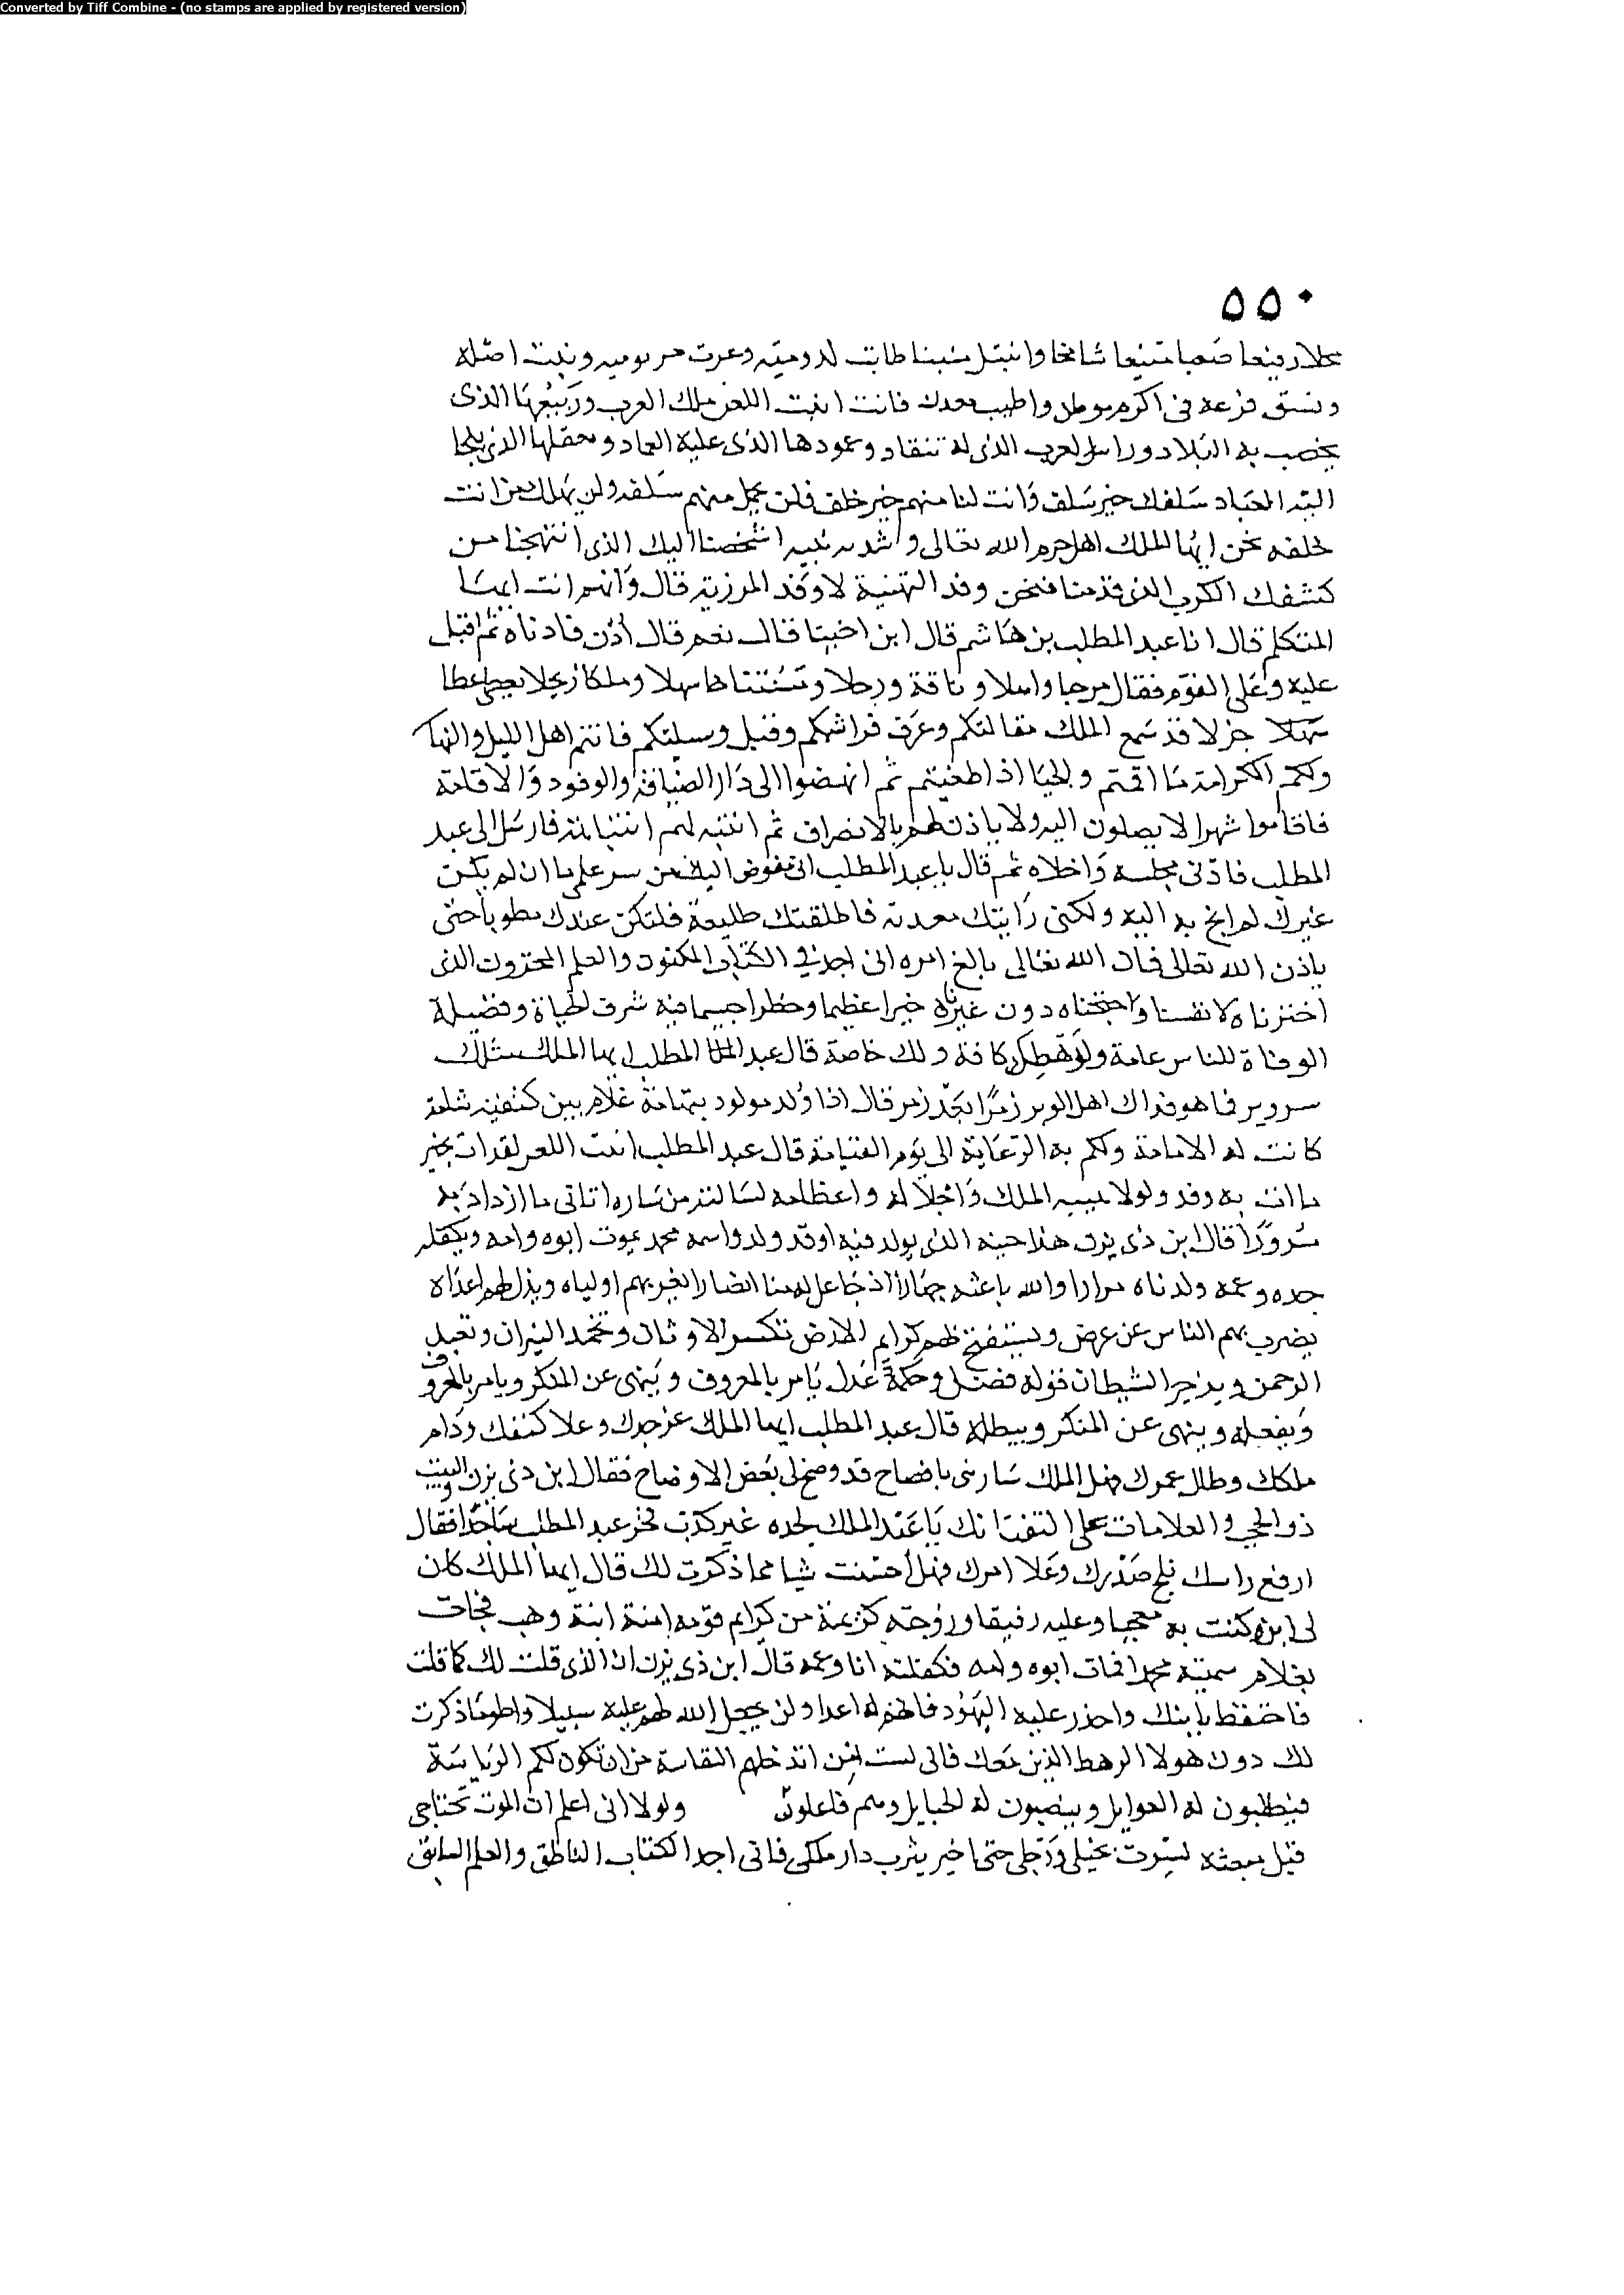 Converted by Tiff Combine - (no stamps are applied by registered version)
٥٥٠
محلا رفيعا صعبا منيعا شامخا وانبتك منبتا طابت ارومته وعزت جرثومته وثبت اصله
وبسق فرعه فى اكرم موطن واطيب معدن فانت ابيت اللعن ملك العرب وربيعها الذى
يخصب به البلاد وراس العرب الذى له تنقاد وعمودها الذى عليه العماد ومعقلها الذى يلجا
اليه العباد سلفك خير سلف وانت لنا منهم خير خلف فلن يخمل منهم سلفه ولن يهلك من انت
خلفه نحن ايها الملك اهل حرم الله تعالى وسدنة بيته اشخصنا اليك الذى ابتهجنا من
كشفك الكرب الذى فدحنا فنحن وفد التهنية لا وفد المرزية قال وايهم انت ايها
المتكلم قال انا عبد المطلب بن هاشم قال ابن اختنا قال نعم قال أذن فادناه ثم اقبل
عليه وعلى القوم فقال مرحبا واهلا وناقة ورحلا ومستناخا سهلا وملكا ربحلا يعطى عطا
جزلا قد سمع الملك مقالتكم وعرف قرابتكم وقبل وسيلتكم فانتم اهل الليل والنهار
ولكم الكرامة ما اقمتم والحبا اذا ظعنتم ثم انهضوا الى دار الضيافة والوفود والاقامة
فاقاموا شهرا لا يصلون اليه ولا ياذن لهم بالانصراف ثم انتبه لهم انتباهة فارسل الى عبد
المطلب فادنى مجلسه واخلاه ثم قال يا عبد المطلب انى مفوض اليك من سر علمى ما ان لم يكن
غيرك لم ابح به اليه ولكنى رايتك معدنه فاطلعتك طليعة فلتكن عندك مطويا حتى
ياذن الله تعالى فان الله تعالى بالغ امره انى اجد فى الكتاب المكنون والعلم المخزون الذى
اخترناه لانفسنا واحتجناه دون غيرنا خبرا عظيما وخطرا جسيما فيه شرف الحياة وفضيلة
الوفاة للناس عامة ولرهطك كافة ولك خاصة قال عبد المطلب ايها الملك مثلك
سر وبر فما هو فداك اهل الوبر زمرا بعد زمر قال اذا ولد مولود بتهامة غلام بين كتفيه شامة
كانت له الامامة ولكم به الزعامة الى يوم القيامة قال عبد المطلب ابيت اللعن لقد ات بخير
ما ات به وفد ولولا هيبة الملك واجلاله واعظامه لسالته من ساره اياتى ما ازداد به
سرورا قال ابن ذى يزن هذا حينه الذى يولد فيه اوقد ولد واسمه محمد يموت ابوه وامه ويكفله
جده وعمه ولدناه مرارا والله باعثه جهارا اذ جاعل له منا انصارا يعز بهم اولياه ويذل بهم اعداه
يضرب بهم الناس عن عرض ويستفتح بهم كرايم الارض تكسر الاوثان وتخمد النيران وتعبد
الرحمن ويدحر الشيطان قوله فصل وحكمه عدل يامر بالمعروف وينهى عن المنكر ويامر بالمعروف
ويفعله وينهى عن المنكر ويبطله قال عبد المطلب ايها الملك عز جدك وعلا كنفك ودام
ملكك وطال عمرك فهل الملك سارنى بافصاح قد وضح لى بعض الاوضاح فقال ابن ذى يزن والبيت
ذو الحجب والعلامات على النقب انك يا عبد الملك لجده غير كذب فخر عبد المطلب ساجدا فقال
ارفع راسك ثلج صدرك وعلا امرك فهل احسست شيا مما ذكرت لك قال ايها الملك كان
لى ابن وكنت به معجبا وعليه رفيقا وزوجته كريمة من كرايم قومه امنة ابنة وهب فجات
بغلام سميته محمدا فمات ابوه وامه فكفلته انا وعمه قال ابن ذى يزن ان الذى قلت لك كما قلت
فاحتفظ بابنك واحذر عليه اليهود فانهم له اعدا ولن يجعل الله لهم عليه سبيلا واطو ما ذكرت
لك دون هولا الرهط الذين معك فانى لست امن ان تدخلهم النفاسة من ان تكون لكم الرياسة
فيطلبون له الغوايل وينصبون له الحبايل وهم فاعلون ولولا انى اعلم ان الموت مجتاحى
قبل مبعثه لسرت بخيلى ورجلى حتى اخير يثرب دار ملكى فانى اجد الكتاب الناطق والعلم السابق